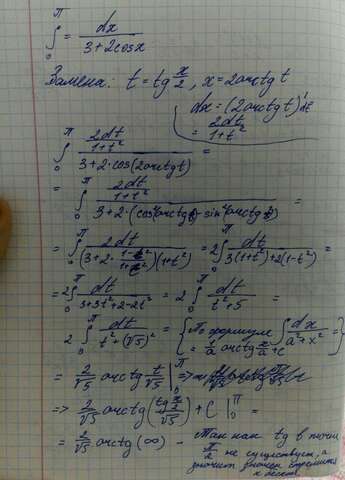 ∫₀^π = dx / (3+2cosx)
Замена: t = tg x/2, x = 2arctg t
dx = (2arctg t)' dt
= 2dt / (1+t²)
∫₀^π (2dt/(1+t²)) / (3+2·cos(2arctg t)) =
= ∫₀^π (2dt/(1+t²)) / (3+2·(cos²arctg t - sin²arctg t)) =
= ∫₀^π 2dt / ((3+2·(1-t²)/(1+t²))(1+t²)) = 2∫₀^π dt / (3(1+t²)+2(1-t²)) =
= 2∫₀^π dt / (3+3t²+2-2t²) = 2 ∫₀^π dt / (t²+5) =
2 ∫₀^π dt / (t²+(√5)²) = { По формуле ∫ dx / (a²+x²) = 1/a arctg x/a + C } =
= 2/√5 arctg t/√5 |₀^π =>
=> 2/√5 arctg(tg x/2 / √5) + C |₀^π =
= 2/√5 arctg(∞) - Так как tg в точке
π/2 не существует, а
значит значен стремится
к беск.